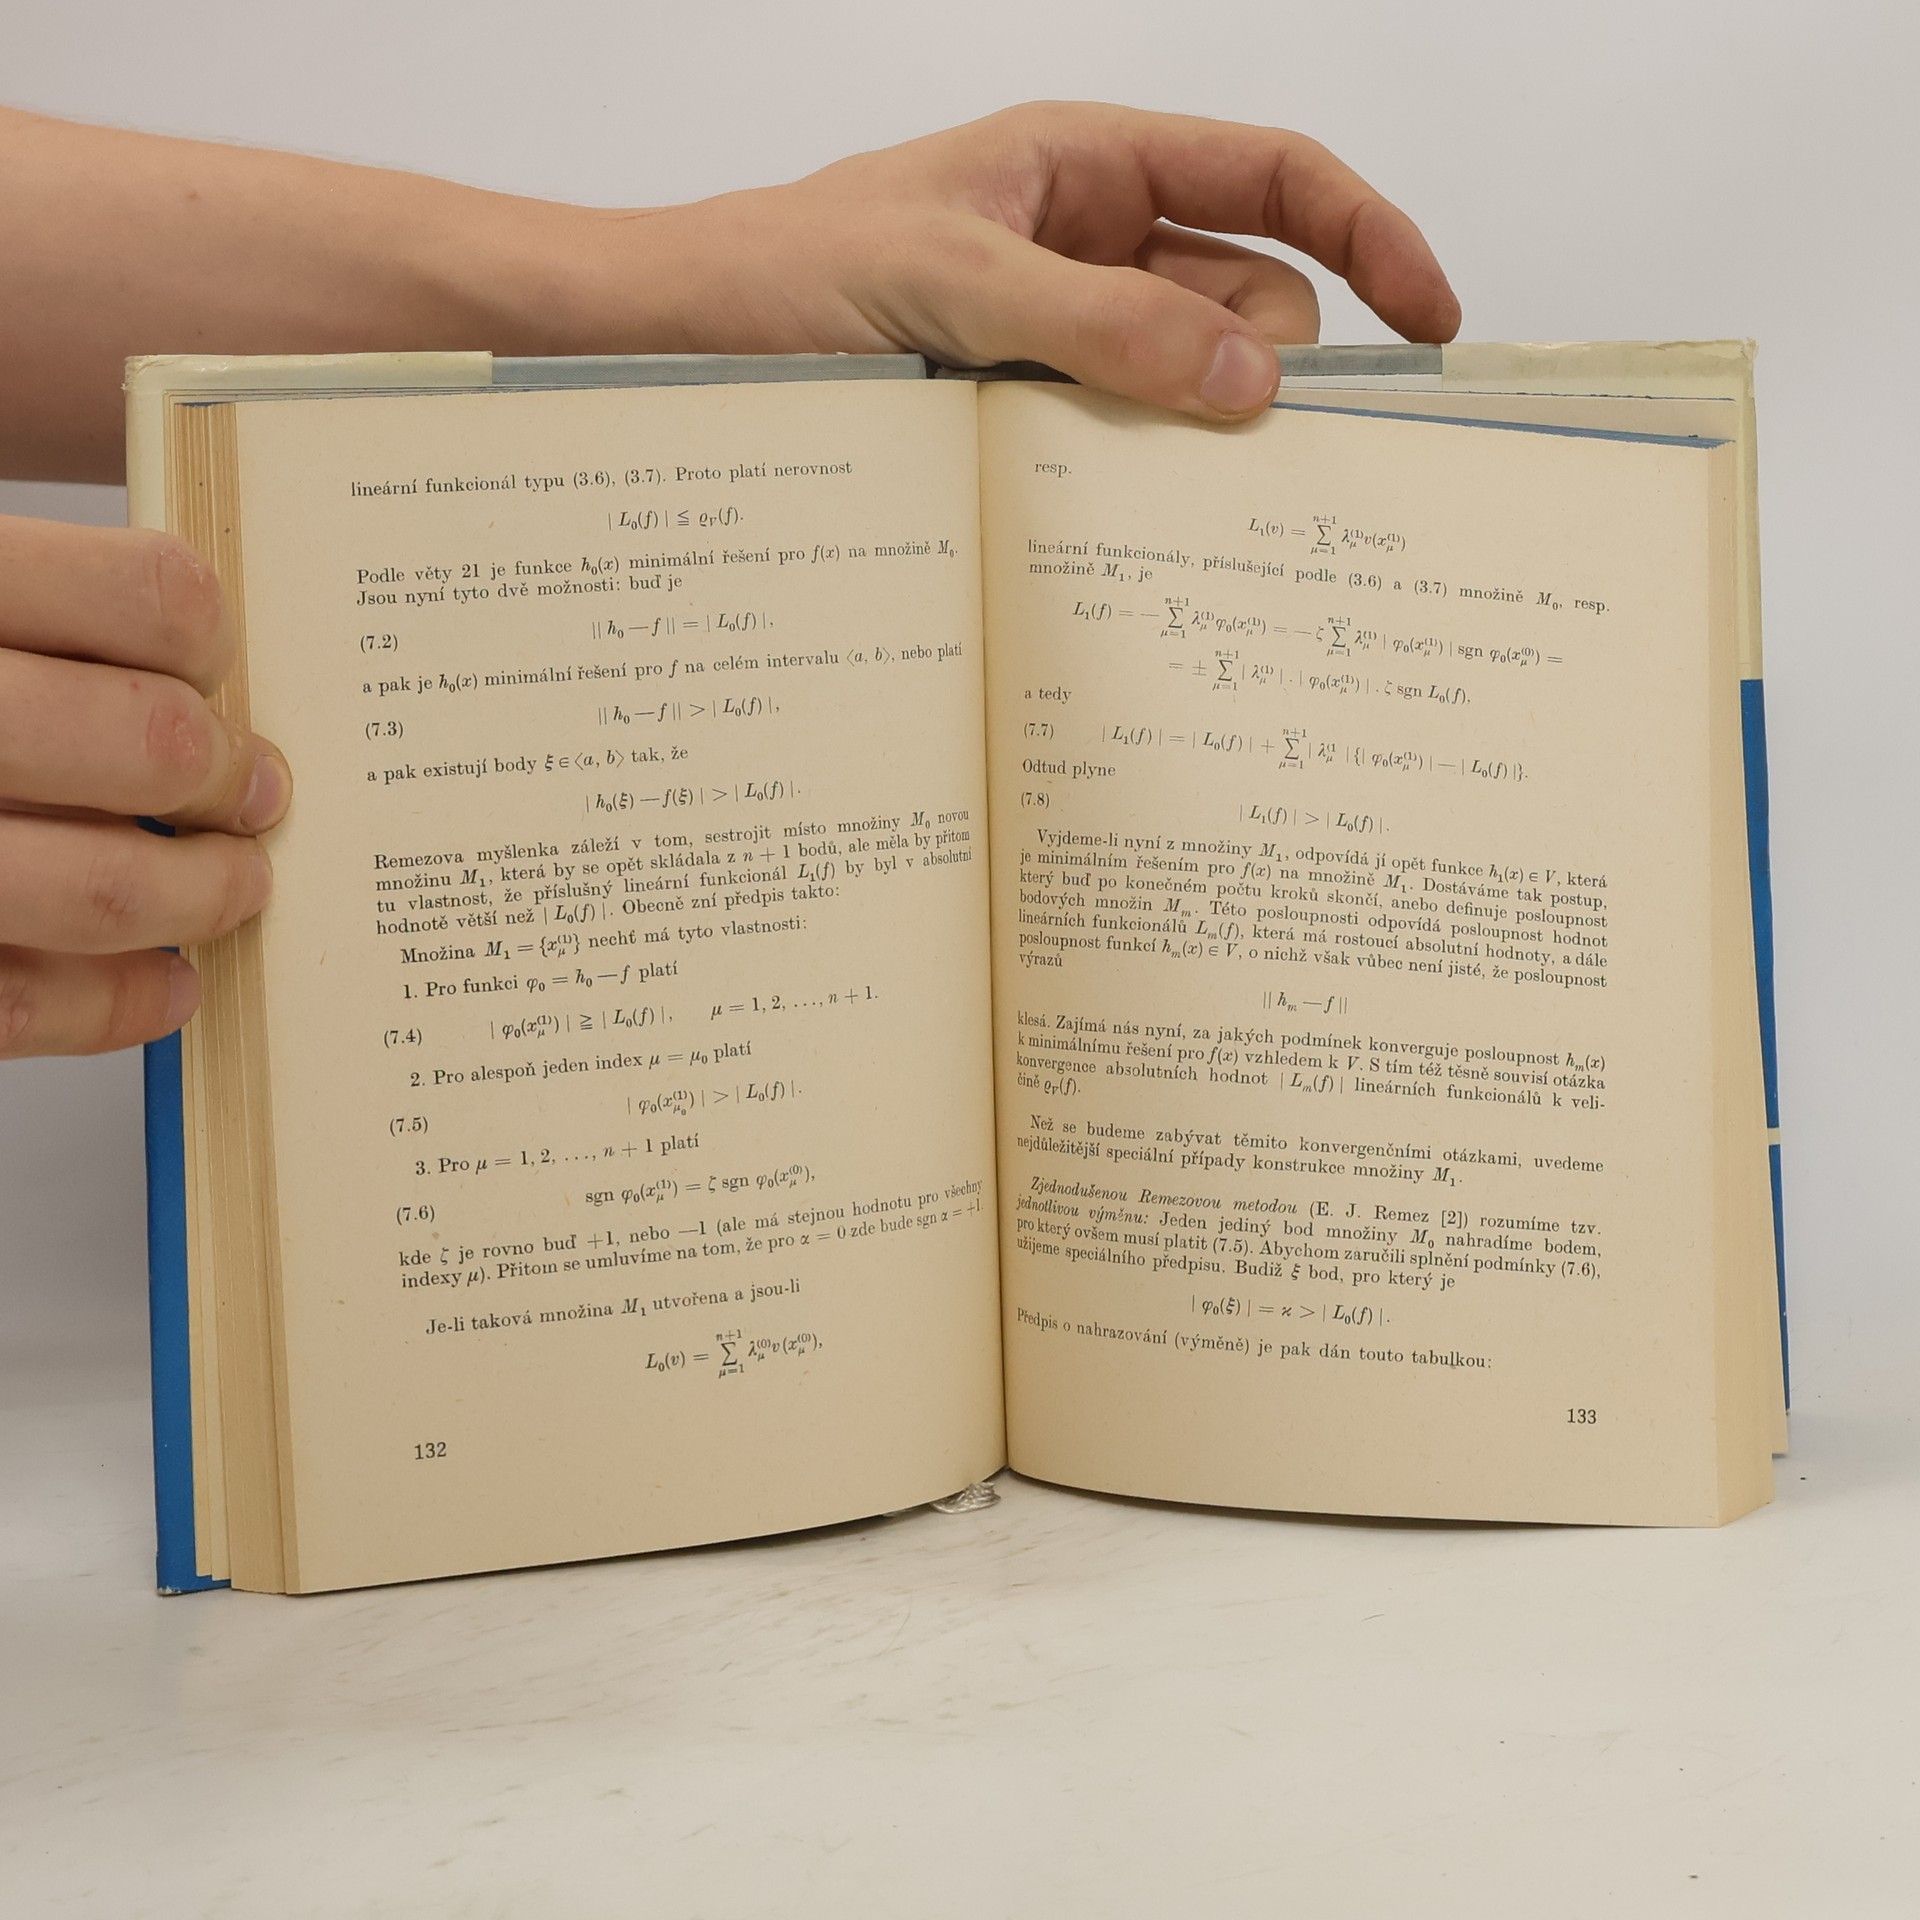 lineární funkcionál typu (3.6), (3.7). Proto platí nerovnost
| L₀(f) | ≦ ϱ_V(f).
Podle věty 21 je funkce h₀(x) minimální řešení pro f(x) na množině M₀.
Jsou nyní tyto dvě možnosti: buď je
(7.2) || h₀ — f || = | L₀(f) |,
a pak je h₀(x) minimální řešení pro f na celém intervalu ⟨a, b⟩, nebo platí
(7.3) || h₀ — f || > | L₀(f) |,
a pak existují body ξ ∈ ⟨a, b⟩ tak, že
| h₀(ξ) — f(ξ) | > | L₀(f) |.
Remezova myšlenka záleží v tom, sestrojit místo množiny M₀ novou
množinu M₁, která by se opět skládala z n + 1 bodů, ale měla by přitom
tu vlastnost, že příslušný lineární funkcionál L₁(f) by byl v absolutní
hodnotě větší než | L₀(f) |. Obecně zní předpis takto:
Množina M₁ = {x_μ^(1)} nechť má tyto vlastnosti:
1. Pro funkci φ₀ = h₀ — f platí
(7.4) | φ₀(x_μ^(1)) | ≧ | L₀(f) |, μ = 1, 2, ..., n + 1.
2. Pro alespoň jeden index μ = μ₀ platí
(7.5) | φ₀(x_μ₀^(1)) | > | L₀(f) |.
3. Pro μ = 1, 2, ..., n + 1 platí
(7.6) sgn φ₀(x_μ^(1)) = ζ sgn φ₀(x_μ^(0)),
kde ζ je rovno buď +1, nebo —1 (ale má stejnou hodnotu pro všechny
indexy μ). Přitom se umluvíme na tom, že pro α = 0 zde bude sgn α = +1.
Je-li taková množina M₁ utvořena a jsou-li
L₀(v) = ∑_{μ=1}^{n+1} λ_μ^(0) v(x_μ^(0)),
132
resp.
L₁(v) = ∑_{μ=1}^{n+1} λ_μ^(1) v(x_μ^(1))
lineární funkcionály, příslušející podle (3.6) a (3.7) množině M₀, resp.
množině M₁, je
L₁(f) = — ∑_{μ=1}^{n+1} λ_μ^(1) φ₀(x_μ^(1)) = — ζ ∑_{μ=1}^{n+1} λ_μ^(1) | φ₀(x_μ^(1)) | sgn φ₀(x_μ^(0)) =
= ± ∑_{μ=1}^{n+1} | λ_μ^(1) | . | φ₀(x_μ^(1)) | . ζ sgn L₀(f),
a tedy
(7.7) | L₁(f) | = | L₀(f) | + ∑_{μ=1}^{n+1} | λ_μ^(1 | {| φ₀(x_μ^(1)) | — | L₀(f) |}.
Odtud plyne
(7.8) | L₁(f) | > | L₀(f) |.
Vyjdeme-li nyní z množiny M₁, odpovídá jí opět funkce h₁(x) ∈ V, která
je minimálním řešením pro f(x) na množině M₁. Dostáváme tak postup,
který buď po konečném počtu kroků skončí, anebo definuje posloupnost
bodových množin M_m. Této posloupnosti odpovídá posloupnost hodnot
lineárních funkcionálů L_m(f), která má rostoucí absolutní hodnoty, a dále
posloupnost funkcí h_m(x) ∈ V, o nichž však vůbec není jisté, že posloupnost
výrazů
|| h_m — f ||
klesá. Zajímá nás nyní, za jakých podmínek konverguje posloupnost h_m(x)
k minimálnímu řešení pro f(x) vzhledem k V. S tím též těsně souvisí otázka
konvergence absolutních hodnot | L_m(f) | lineárních funkcionálů k veli-
čině ϱ_V(f).
Než se budeme zabývat těmito konvergenčními otázkami, uvedeme
nejdůležitější speciální případy konstrukce množiny M₁.
Zjednodušenou Remezovou metodou (E. J. Remez [2]) rozumíme tzv.
jednotlivou výměnu: Jeden jediný bod množiny M₀ nahradíme bodem,
pro který ovšem musí platit (7.5). Abychom zaručili splnění podmínky (7.6),
užijeme speciálního předpisu. Budiž ξ bod, pro který je
| φ₀(ξ) | = ϰ > | L₀(f) |.
Předpis o nahrazování (výměně) je pak dán touto tabulkou:
133